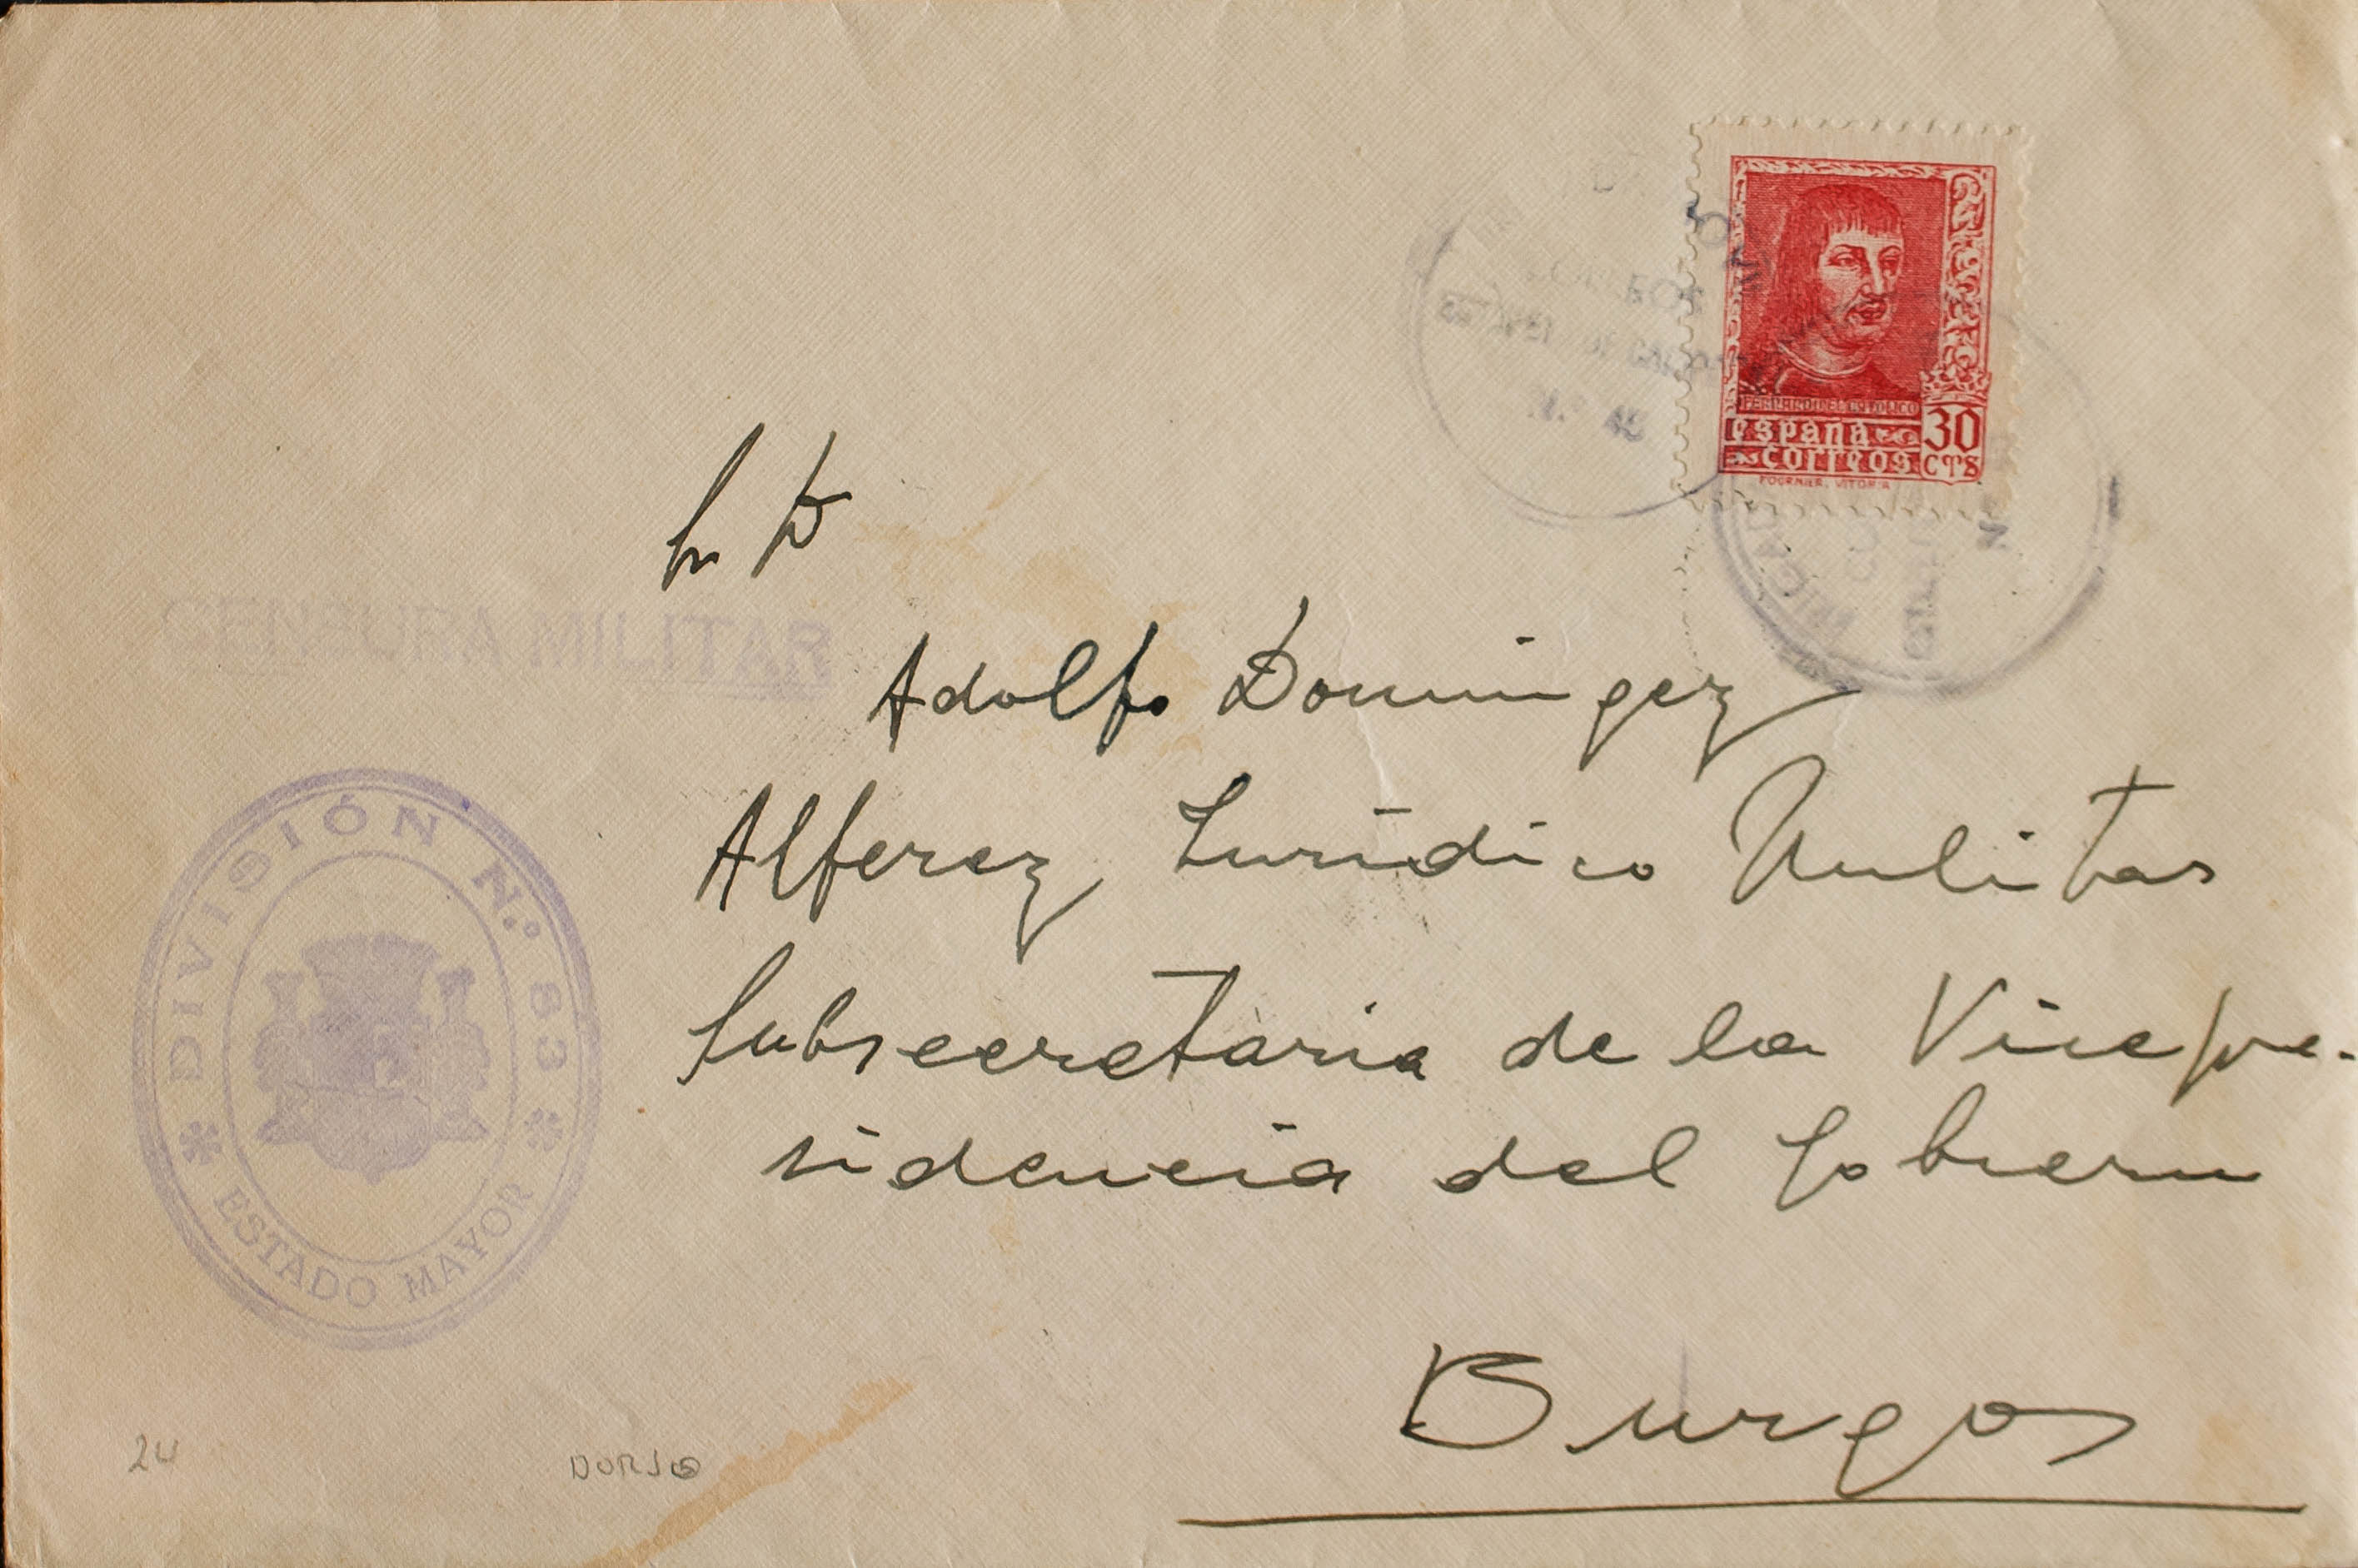 FERNANDO EL CATOLICO
españa 30
correos CTS
FOURNIER. VITORIA
Sr D
CENSURA MILITAR
Adolfo Dominguez
Alferez Juridico Militar
Subsecretaria de la Vicepre-
sidencia del Gobierno
Burgos
DIVISIÓN N.º 83
ESTADO MAYOR
24
DORSO